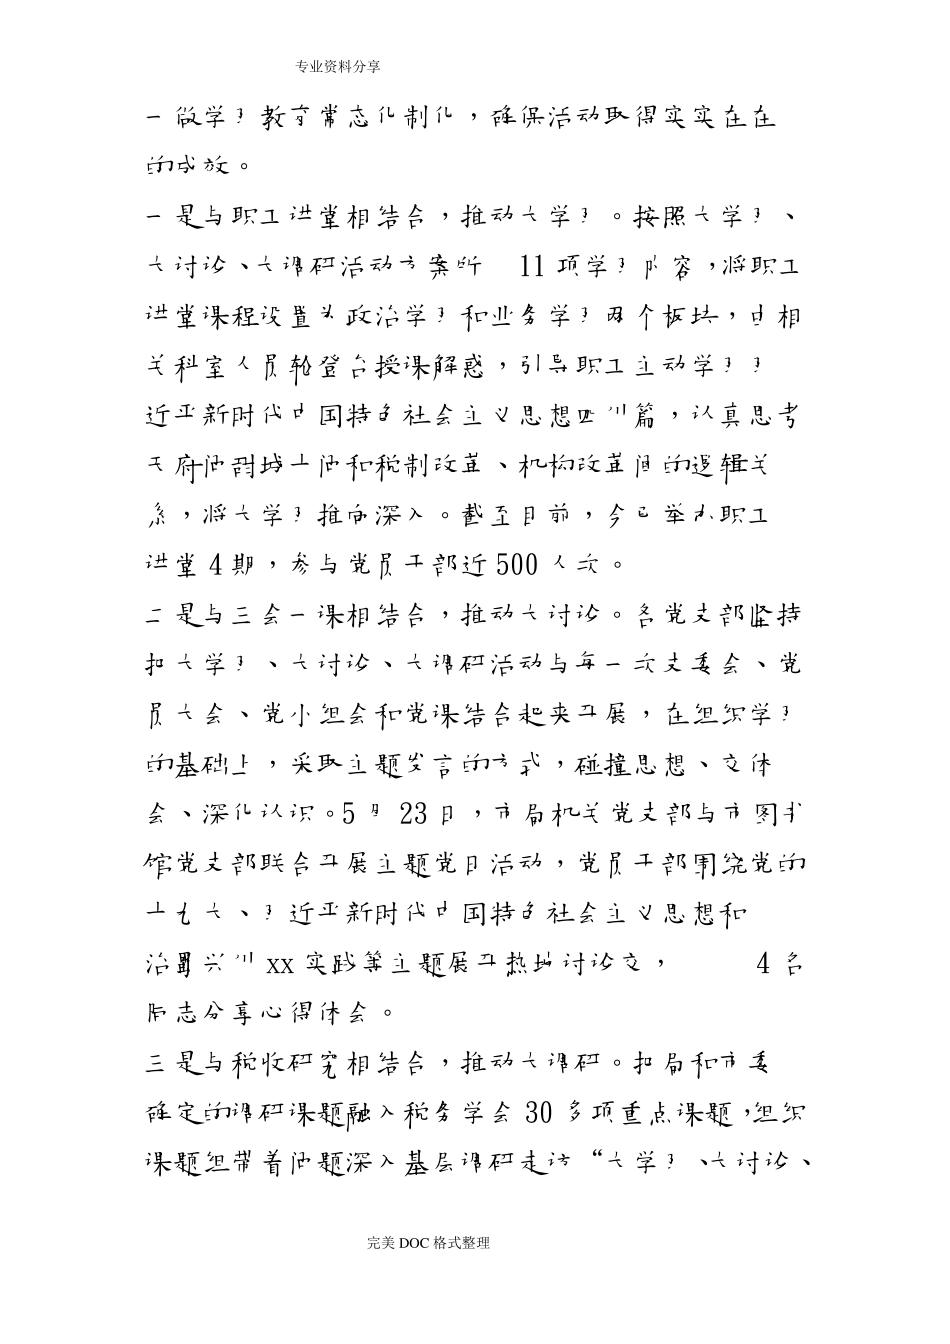 专业资料分享
一做学习教育常态化制化，确保活动取得实实在在
的成效。
一是与职工讲堂相结合，推动大学习。按照大学习、
大讨论、大调研活动方案所 11 项学习内容，将职工
讲堂课程设置为政治学习和业务学习两个板块，由相
关科室人员轮登台授课解惑，引导职工主动学习习
近平新时代中国特色社会主义思想四川篇，认真思考
天府面城上面和税制改革、机构改革间的逻辑关
系，将大学习推向深入。截至目前，今已举办职工
讲堂 4 期，参与党员干部近 500 人次。
二是与三会一课相结合，推动大讨论。各党支部坚持
把大学习、大讨论、大调研活动与每一次支委会、党
员大会、党小组会和党课结合起来开展，在组织学习
的基础上，采取主题发言的方式，碰撞思想、交体
会、深化认识。5 月 23 日，市局机关党支部与市图书
馆党支部联合开展主题党日活动，党员干部围绕党的
十九大、习近平新时代中国特色社会主义思想和
治蜀兴川 xx 实践等主题展开热烈讨论交， 4 名
同志分享心得体会。
三是与税收研究相结合，推动大调研。把局和市委
确定的调研课题融入税务学会 30 多项重点课题，组织
课题组带着问题深入基层调研走访“大学习、大讨论、
完美 DOC 格式整理